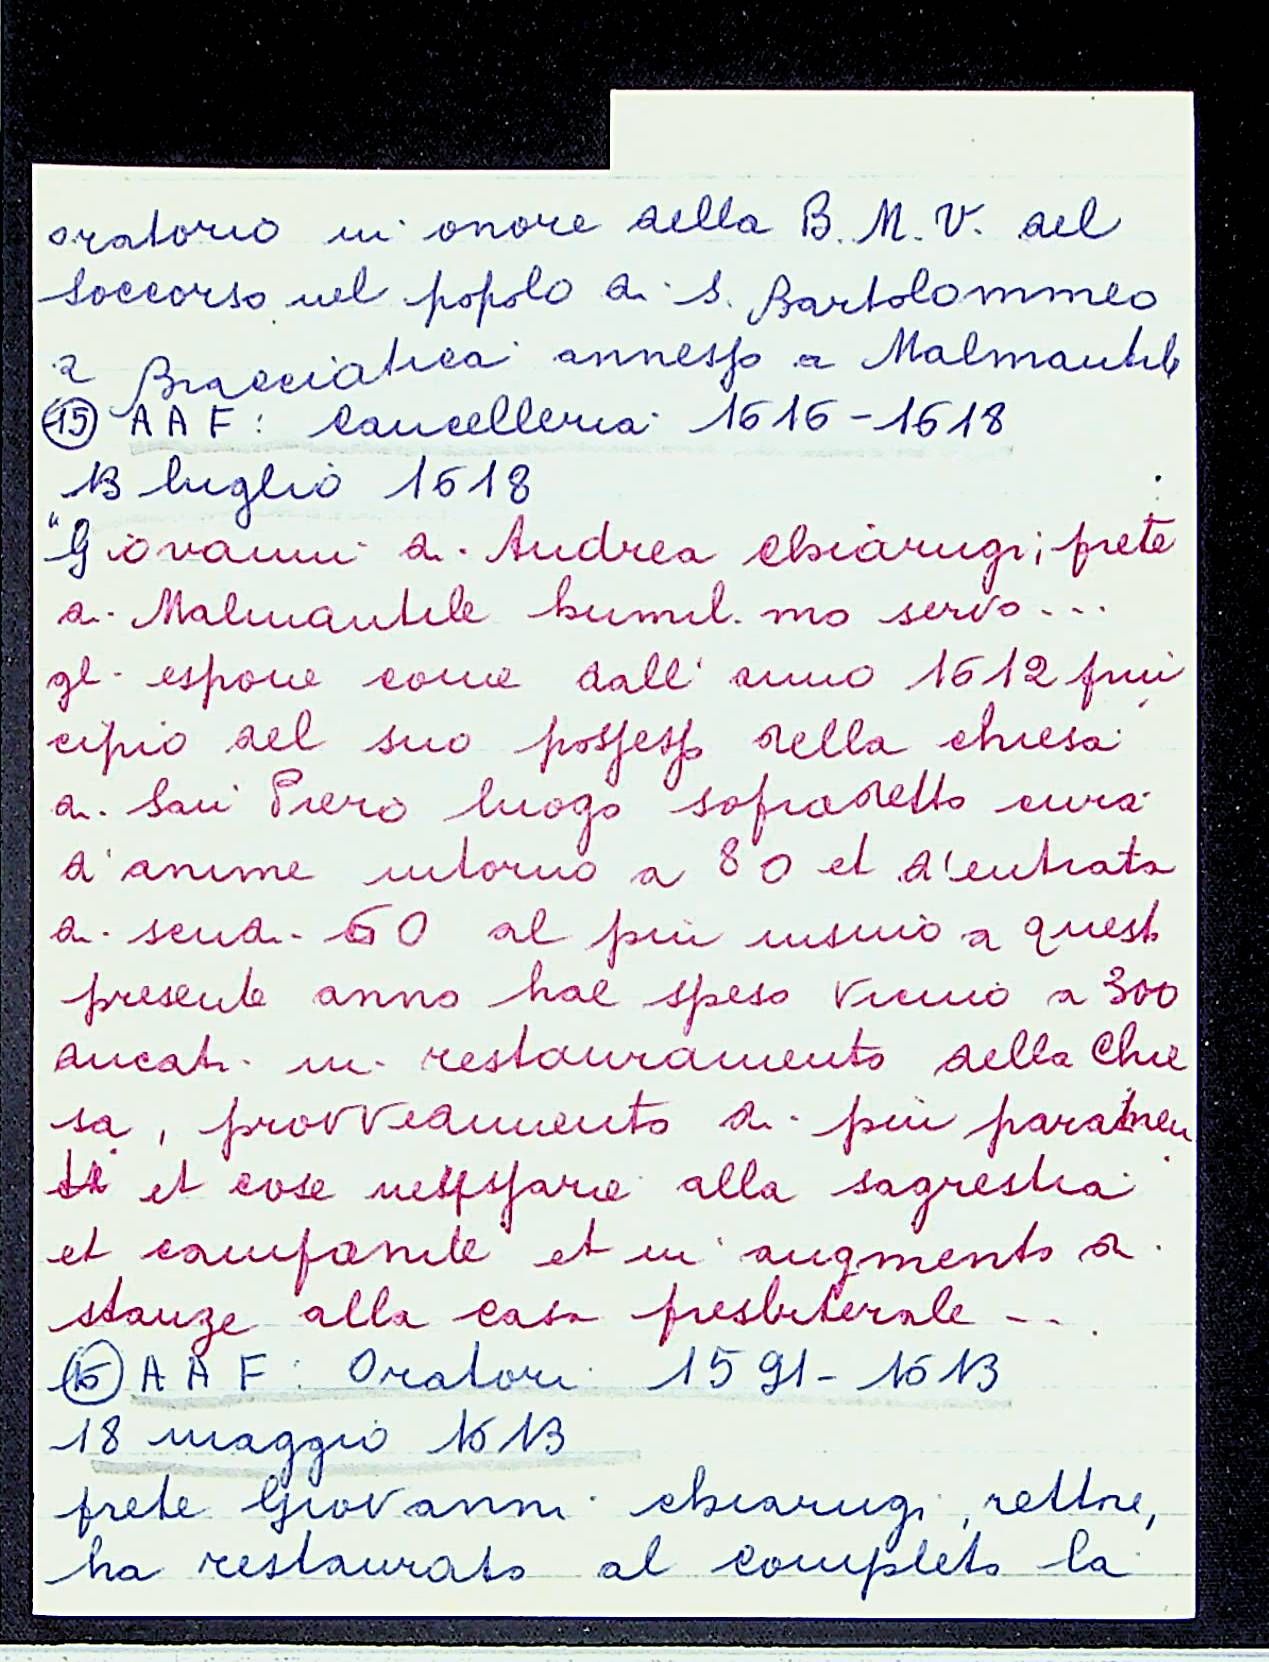 oratorio in onore della B. M. V. del
soccorso nel popolo di S. Bartolommeo
a Bracciatica annesso a Malmantile
(15) A A F: Cancelleria 1616-1618
13 luglio 1618
"Giovanni di Andrea Chiarugi, prete
di Malmantile humil.mo servo...
gli espone come dall'anno 1612 prin
cipio del suo possesso della chiesa
di San Piero luogo sopradetto cura
d'anime intorno a 80 et d'entrata
di scudi 60 al più insino a questo
presente anno hae speso vicino a 300
ducati in restauramento della Chie
sa, provvedimento di più paramen
ti et cose necessarie alla sagrestia
et campanile et in augmento di
stanze alla casa presbiterale ...
(16) A A F: Oratori 1591-1613
18 maggio 1613
prete Giovanni Chiarugi, rettore,
ha restaurato al completo la